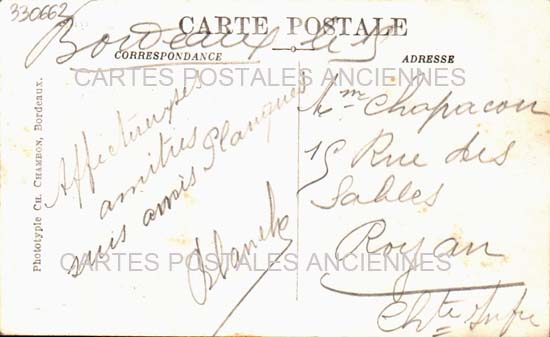 330662
CARTE POSTALE
Bordeaux le 5
CORRESPONDANCE
ADRESSE
CARTES POSTALES ANCIENNES
Affectueuses
amitiés
amis Planques
Blanche
Mme Chapacou
15 Rue des
Sables
Royan
Chte Infre
CARTES POSTALES ANCIENNES
Phototype Ch. CHAMBON, Bordeaux.